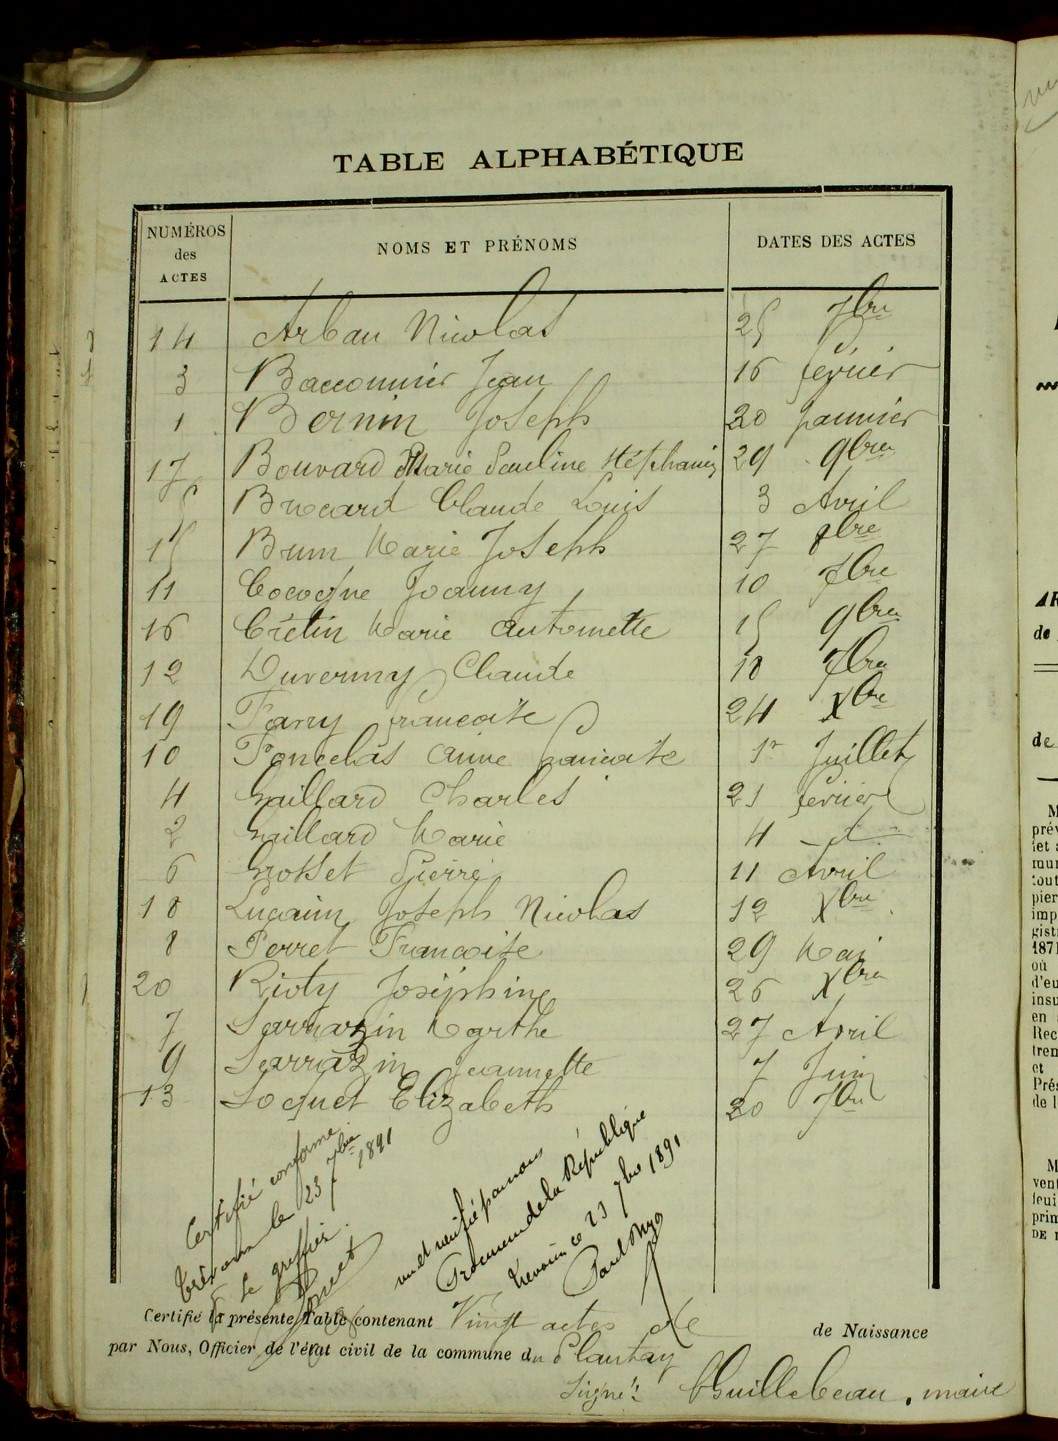 TABLE ALPHABÉTIQUE
NUMÉROS des ACTES NOMS ET PRÉNOMS DATES DES ACTES
14 Arban Nicolas 25 7bre
3 Bacconnier Jean 16 février
1 Bernin Joseph 20 janvier
17 Bouvard Marie Pauline Stéphanie 29 9bre
5 Brocard Claude Louis 3 Avril
15 Brun Marie Joseph 27 8bre
11 Cocogne Joanny 10 7bre
16 Crétin Marie Antoinette 15 9bre
12 Duvernay Claude 18 7bre
19 Fany Françoise 24 Xbre
10 Poncelas Anne Françoise 1r Juillet
4 Gaillard Charles 21 février
2 Gaillard Marie 4 d
6 Grosset Pierre 11 Avril
18 Lugain Joseph Nicolas 12 Xbre
8 Perret Françoise 29 Mai
20 Rioty Joséphine 26 Xbre
7 Sarrazin Marthe 27 Avril
9 Sarrazin Jeannette 7 Juin
13 Soquet Elizabeth 20 7bre
Certifié conforme
Trévoux le 23 7bre 1891
Le greffier
vu et vérifié par nous
Procureur de la République
Trévoux ce 23 7bre 1891
Certifié la présente Table contenant Vingt actes de de Naissance
par Nous, Officier de l'état civil de la commune du Plantay
Signé: Guillebeau, maire